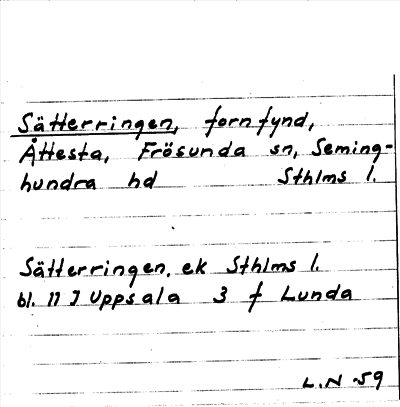 Sätterringen, fornfynd,
Åttesta, Frösunda sn, Seming-
hundra hd Sthlms l.
Sätterringen. ek Sthlms l.
bl. 11 I Uppsala 3 f Lunda
L.N -59